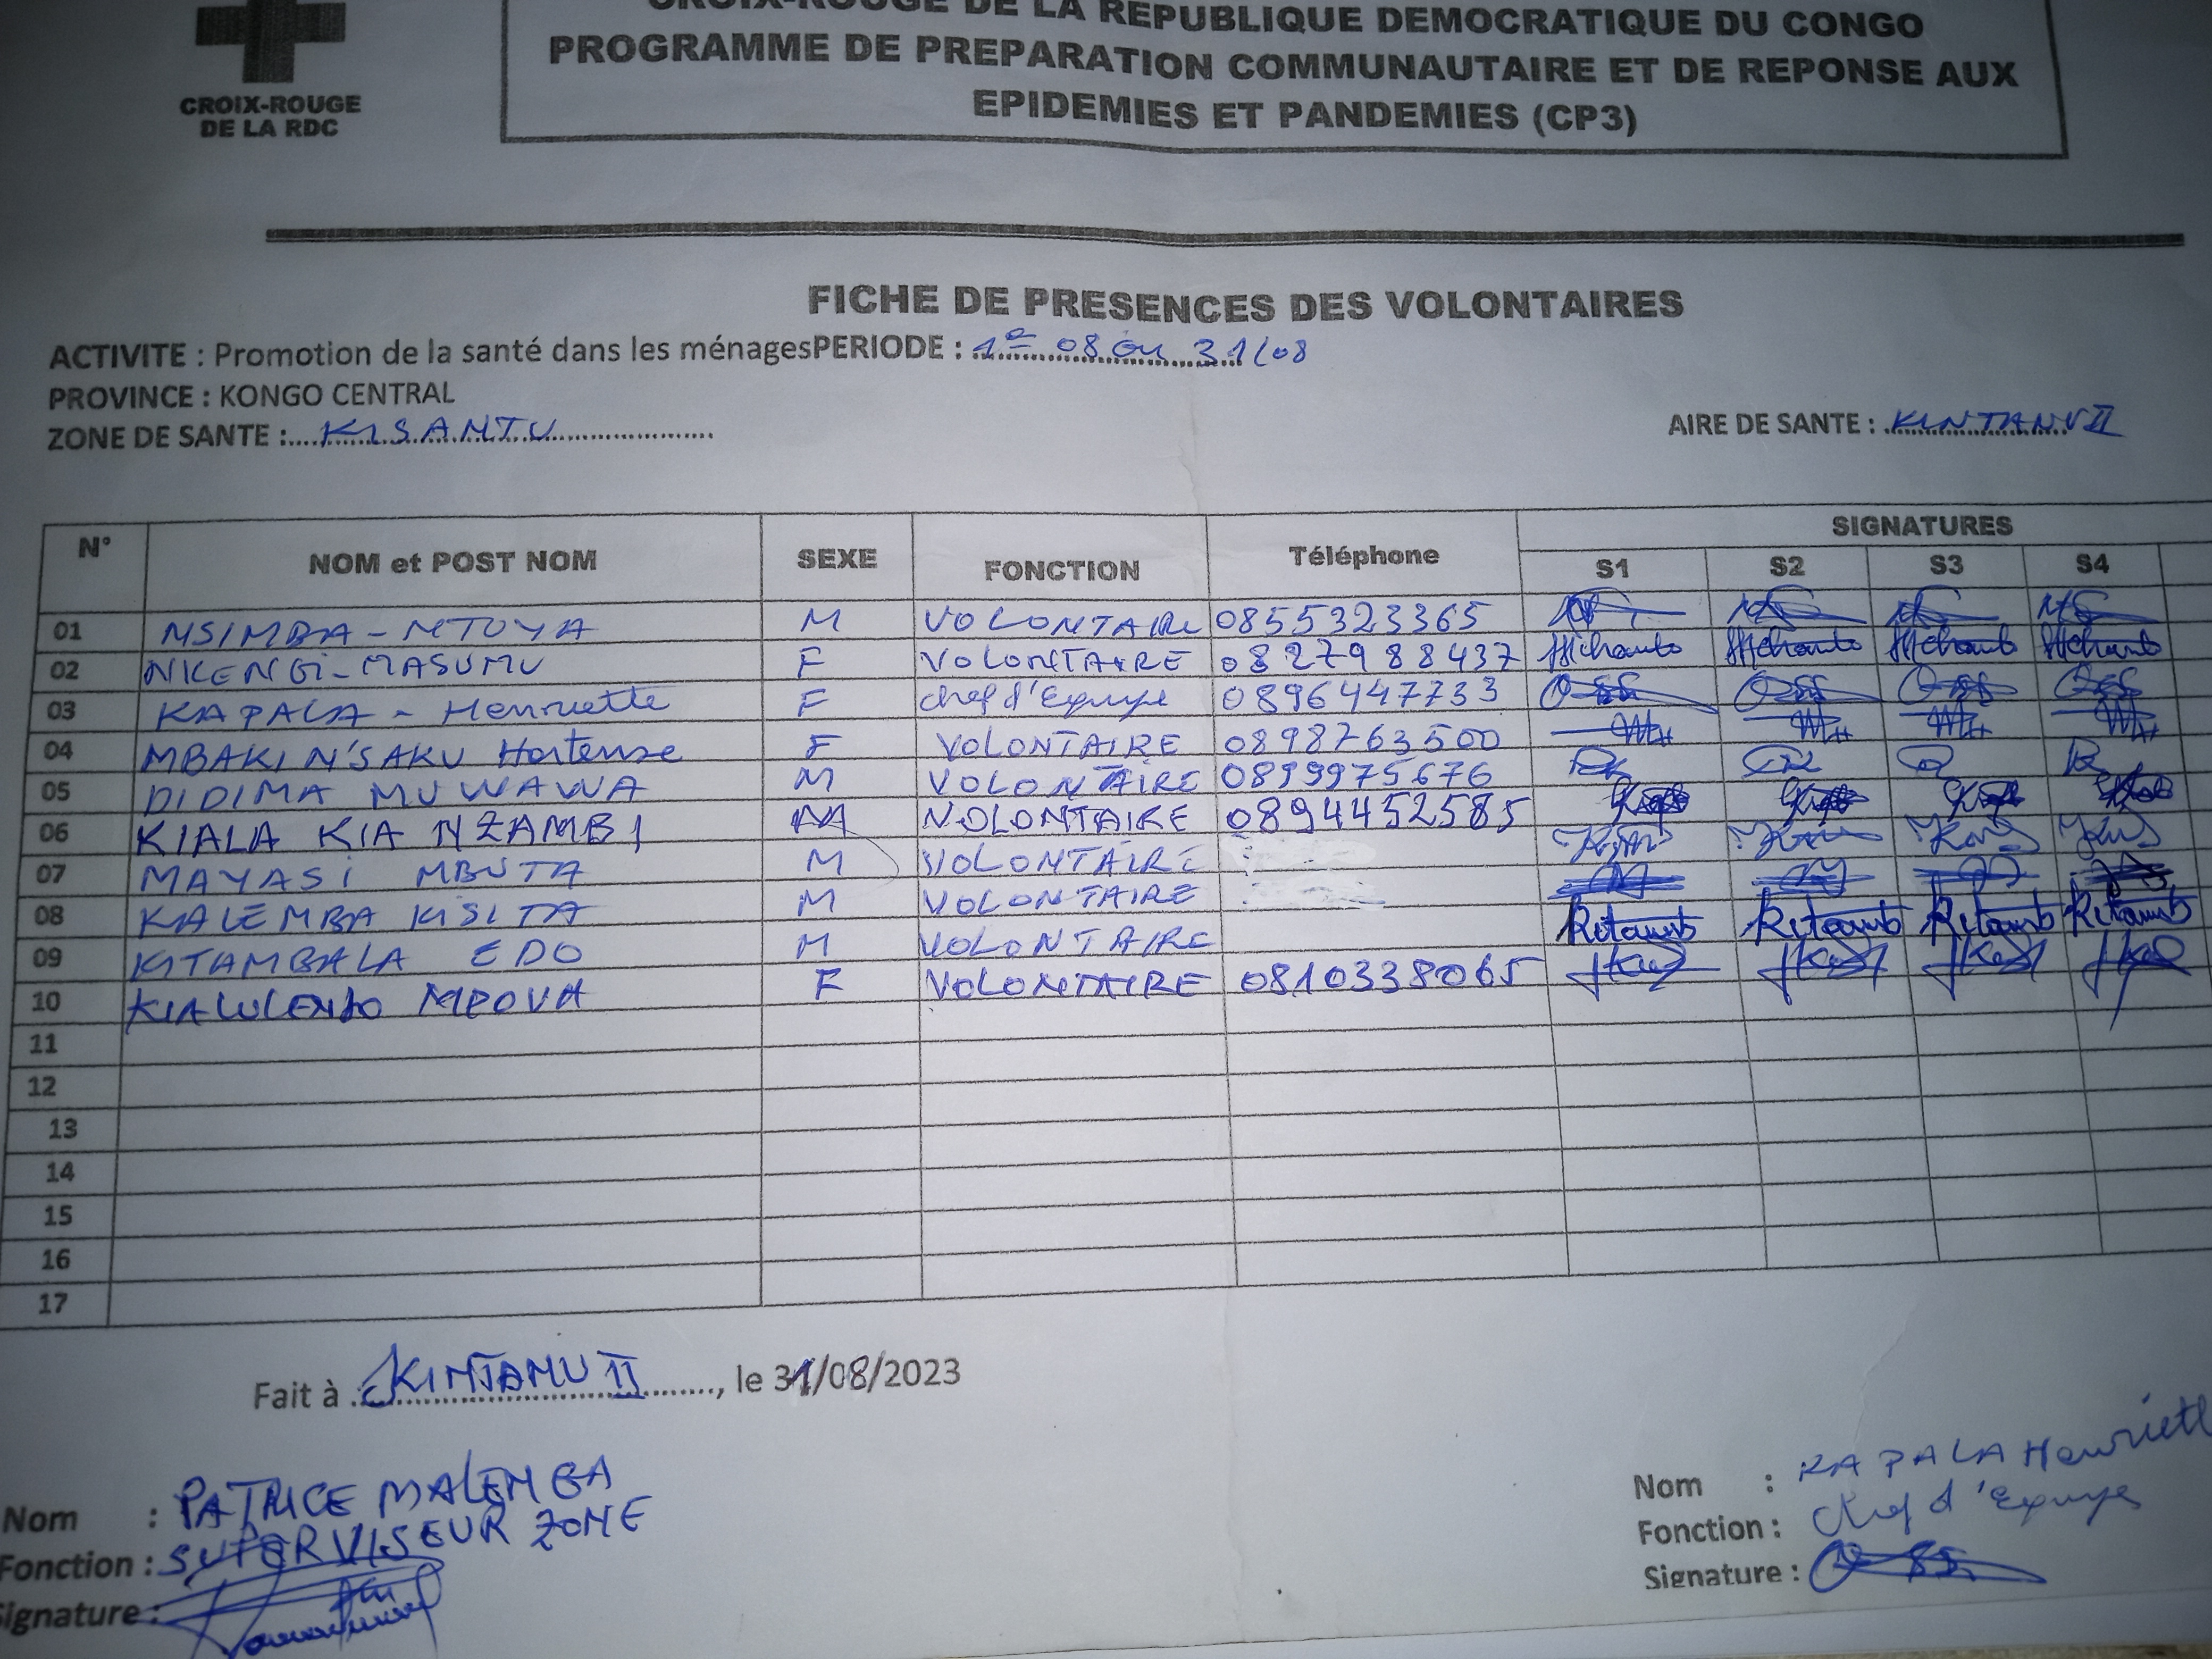 CROIX-ROUGE DE LA REPUBLIQUE DEMOCRATIQUE DU CONGO
PROGRAMME DE PREPARATION COMMUNAUTAIRE ET DE REPONSE AUX
EPIDEMIES ET PANDEMIES (CP3)
CROIX-ROUGE
DE LA RDC
FICHE DE PRESENCES DES VOLONTAIRES
ACTIVITE : Promotion de la santé dans les ménages PERIODE : 1er 08 au 31/08
PROVINCE : KONGO CENTRAL
ZONE DE SANTE : KISANTU AIRE DE SANTE : KINTANU II
N° NOM et POST NOM SEXE FONCTION Téléphone SIGNATURES
S1 S2 S3 S4
01 NSIMBA - NTOYA M VOLONTAIRE 0855323365
02 NKENGI - MASUMU F VOLONTAIRE 0827988437
03 KAPALA - Henriette F chef d'Equipe 0896447733
04 MBAKI N'SAKU Hortense F VOLONTAIRE 0898763500
05 DIDIMA MUWAWA M VOLONTAIRE 0899975676
06 KIALA KIA NZAMBI M VOLONTAIRE 0894452585
07 MAYASI MBUTA M VOLONTAIRE
08 KALEMBA KISITA M VOLONTAIRE
09 KITAMBALA EDO M VOLONTAIRE Kitamb Kitamb Kitamb Kitamb
10 KIALULENDO MPOVA F VOLONTAIRE 0810338065
11
12
13
14
15
16
17
Fait à KINTANU II, le 31/08/2023
Nom : PATRICE MALEMBA
Fonction : SUPERVISEUR ZONE
Signature :
Nom : KAPALA Henriett
Fonction : Chef d'Equipe
Signature :